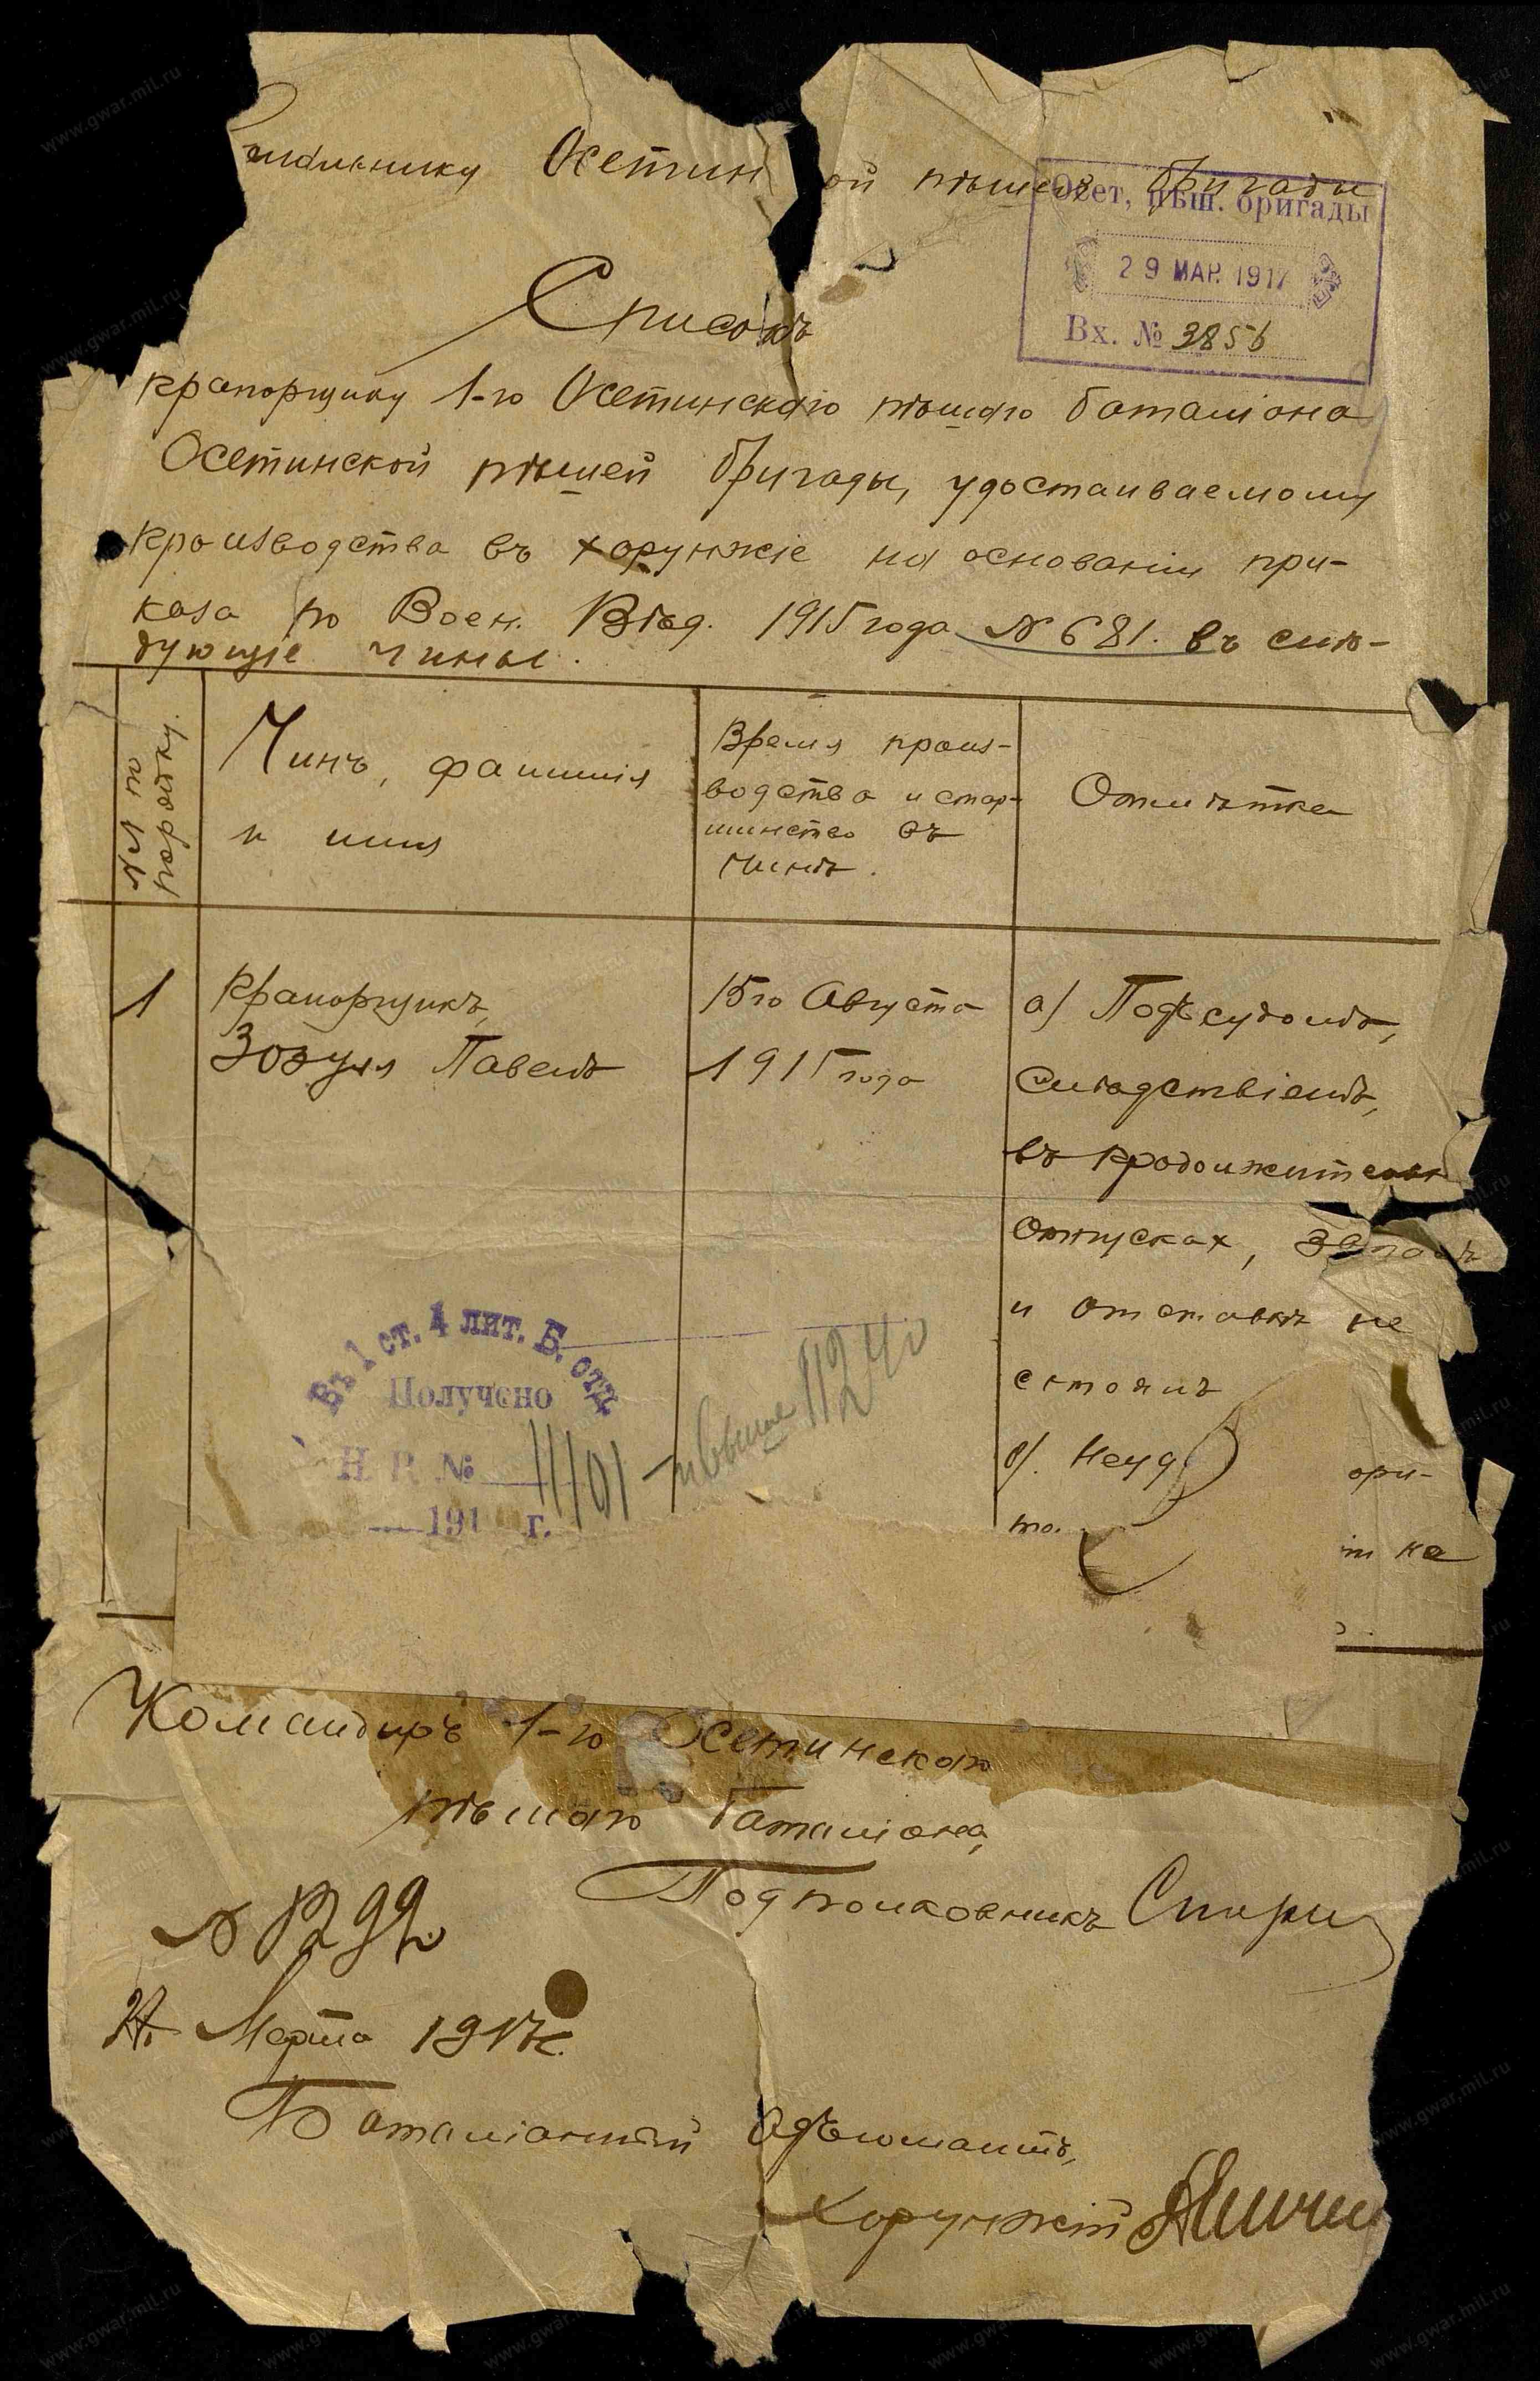 чальнику Осетин ой пѣшей бригады
Осет. пѣш. бригады
29 МАР. 1917
Вх. № 3856
Списокъ
прапорщику 1-го Осетинскаго пѣшаго баталіона
Осетинской пѣшей бригады, удостаиваемому
производства въ хорунжіе на основаніи при-
каза по Воен. Вѣд. 1915 года № 681. въ слѣ-
дующіе чины.
№№ по порядку.
Чинъ, фамилія
и имя
Время произ-
водства и стар-
шинство въ
чинѣ.
Отмѣтка
1
Прапорщикъ,
Зозуля Павелъ
15го Августа
1915 года
а/ Подъ судомъ,
слѣдствіемъ,
въ продолжительн
отпускахъ, запасѣ
и отставкѣ не
стоялъ
б/. Неуд
ори-
то.
т на
Въ 1 ст. 4 лит. Б. отд.
Получено
Н. Р. № 11101
191 г.
11240
Командиръ 1-го Осетинскаго
пѣшаго баталіона,
Подполковникъ
№ 1299
Марта 1917 г.
Баталіонный Адъютантъ,
Хорунжій